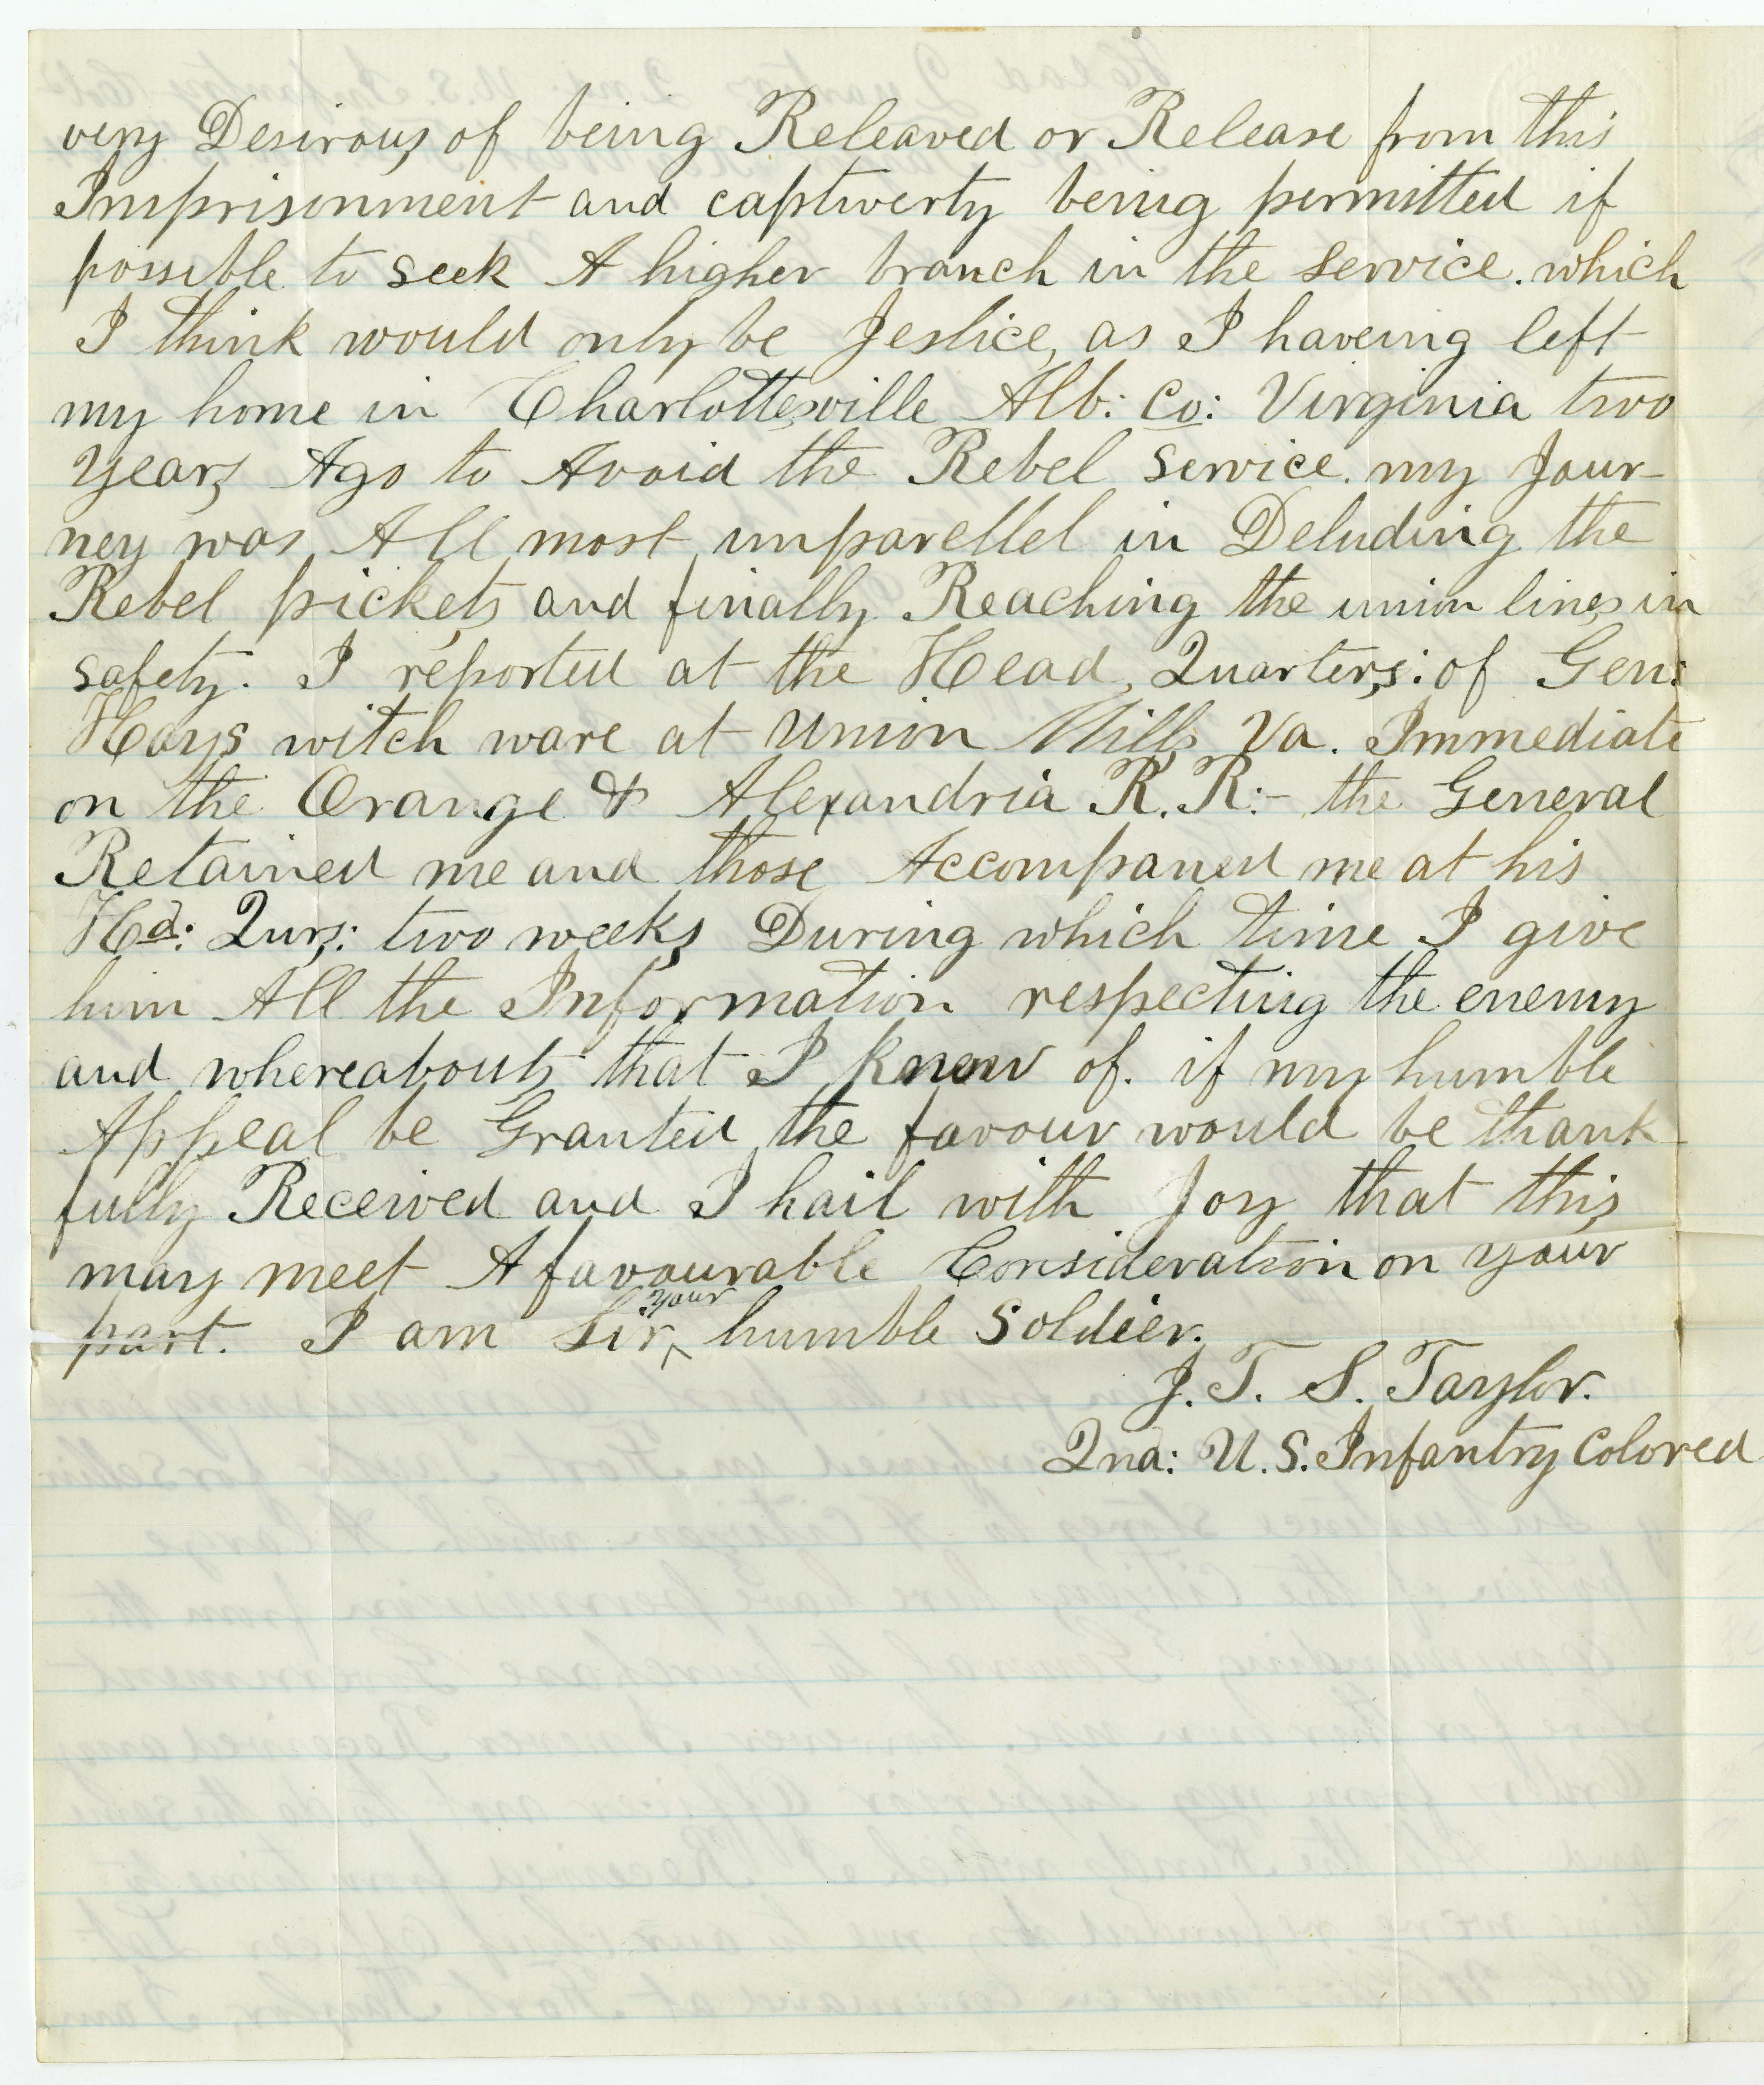 very Desirous of being Releaved or Release from this
Imprisonment and captiverty being permitted if
possible to seek A higher branch in the service. which
I think would only be Jestice, as I haveing left
my home in Charlottesville Alb: Co: Virginia two
years Ago to Avoid the Rebel service. my Jour-
ney was All most unparellel in Deluding the
Rebel pickets and finally Reaching the union lines in
safety. I reported at the Head, Quarters: of Gen:
Hays witch ware at Union Mills Va. Immediate
on the Orange & Alexandria R. R:- the General
Retained me and those Accompaned me at his
Hd: Qurs: two weeks During which time I give
him All the Information respecting the enemy
and whereabouts that I Know of. if my humble
Appeal be Granted the favour would be thank-
fully Received and I hail with Joy that this
may meet A favourable Consideration on your
part. I am Sir, your humble Soldier.
J. T. S. Taylor.
2nd: U. S. Infantry Colored